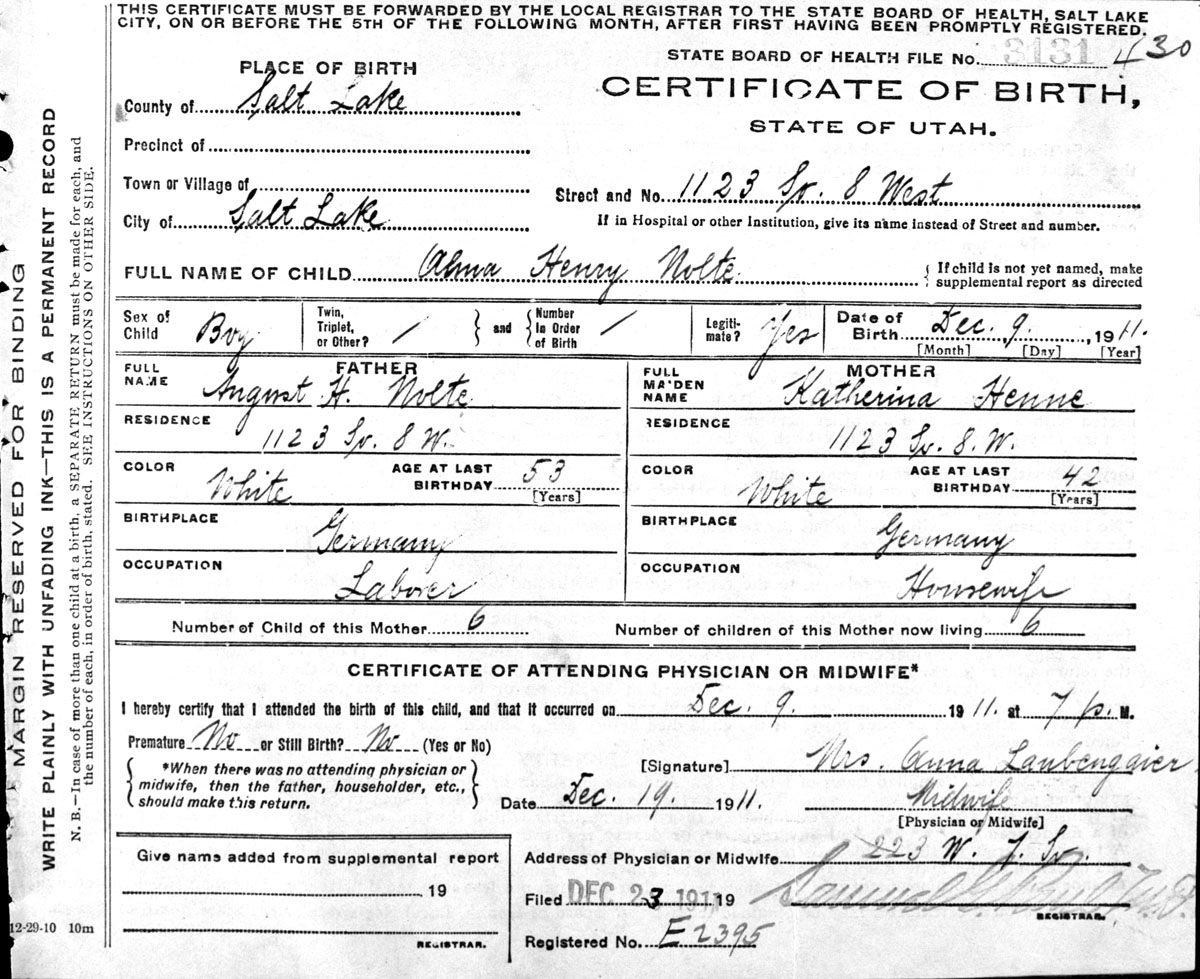 THIS CERTIFICATE MUST BE FORWARDED BY THE LOCAL REGISTRAR TO THE STATE BOARD OF HEALTH, SALT LAKE
CITY, ON OR BEFORE THE 5TH OF THE FOLLOWING MONTH, AFTER FIRST HAVING BEEN PROMPTLY REGISTERED.
STATE BOARD OF HEALTH FILE No. 3131 430
PLACE OF BIRTH
CERTIFICATE OF BIRTH,
STATE OF UTAH.
County of Salt Lake
Precinct of
Town or Village of
Street and No. 1123 So. 8 West
City of Salt Lake
If in Hospital or other Institution, give its name instead of Street and number.
FULL NAME OF CHILD Alma Henry Nolte { If child is not yet named, make
supplemental report as directed
Sex of Child Boy Twin, Triplet, or Other? / } and { Number In Order of Birth / Legiti- mate? Yes Date of Birth Dec. 9, 1911.
[Month] [Day] [Year]
FATHER
FULL NAME August H. Nolte
MOTHER
FULL MA'DEN NAME Katherina Henne
RESIDENCE 1123 So. 8 W.
RESIDENCE 1123 So. 8. W.
COLOR White AGE AT LAST BIRTHDAY 53 [Years]
COLOR White AGE AT LAST BIRTHDAY 42 [Years]
BIRTHPLACE Germany
BIRTHPLACE Germany
OCCUPATION Laborer
OCCUPATION Housewife
Number of Child of this Mother 6 Number of children of this Mother now living 6
CERTIFICATE OF ATTENDING PHYSICIAN OR MIDWIFE*
I hereby certify that I attended the birth of this child, and that it occurred on Dec. 9. 1911. at 7 p. M.
Premature No or Still Birth? No (Yes or No)
{ *When there was no attending physician or
midwife, then the father, householder, etc.,
should make this return. }
[Signature] Mrs. Anna Laubengaier
Date Dec. 19. 1911. Midwife
[Physician or Midwife]
Give name added from supplemental report
19
REGISTRAR.
Address of Physician or Midwife 223 W. 7. So.
Filed DEC 23 1911 19 Samuel G. M.D.
REGISTRAR.
Registered No. E 2395
12-29-10 10m
MARGIN RESERVED FOR BINDING
WRITE PLAINLY WITH UNFADING INK—THIS IS A PERMANENT RECORD
N. B.—In case of more than one child at a birth, a SEPARATE RETURN must be made for each, and
the number of each, in order of birth, stated. SEE INSTRUCTIONS ON OTHER SIDE.